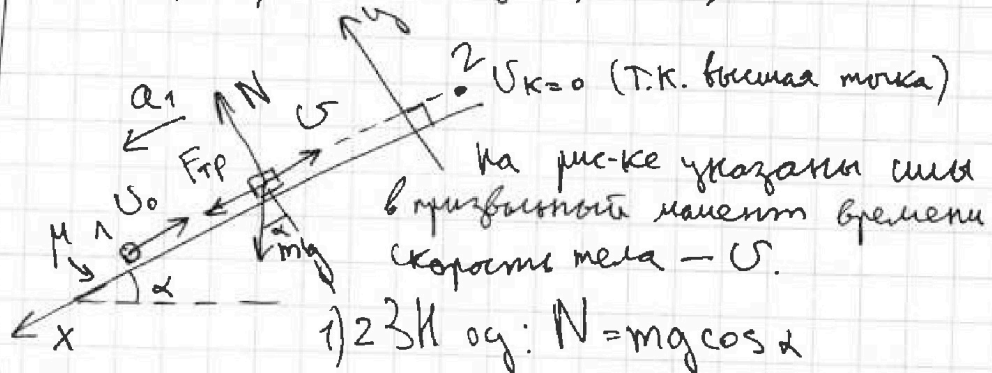 y
N
a₁
υ
2 υк=0 (т.к. высшая точка)
Fтр
υ₀
На рис-ке указаны силы
в произвольный момент времени
μ 1
α
mg
скорость тела — υ.
α
x
1) 2ЗН оу: N=mgcosα